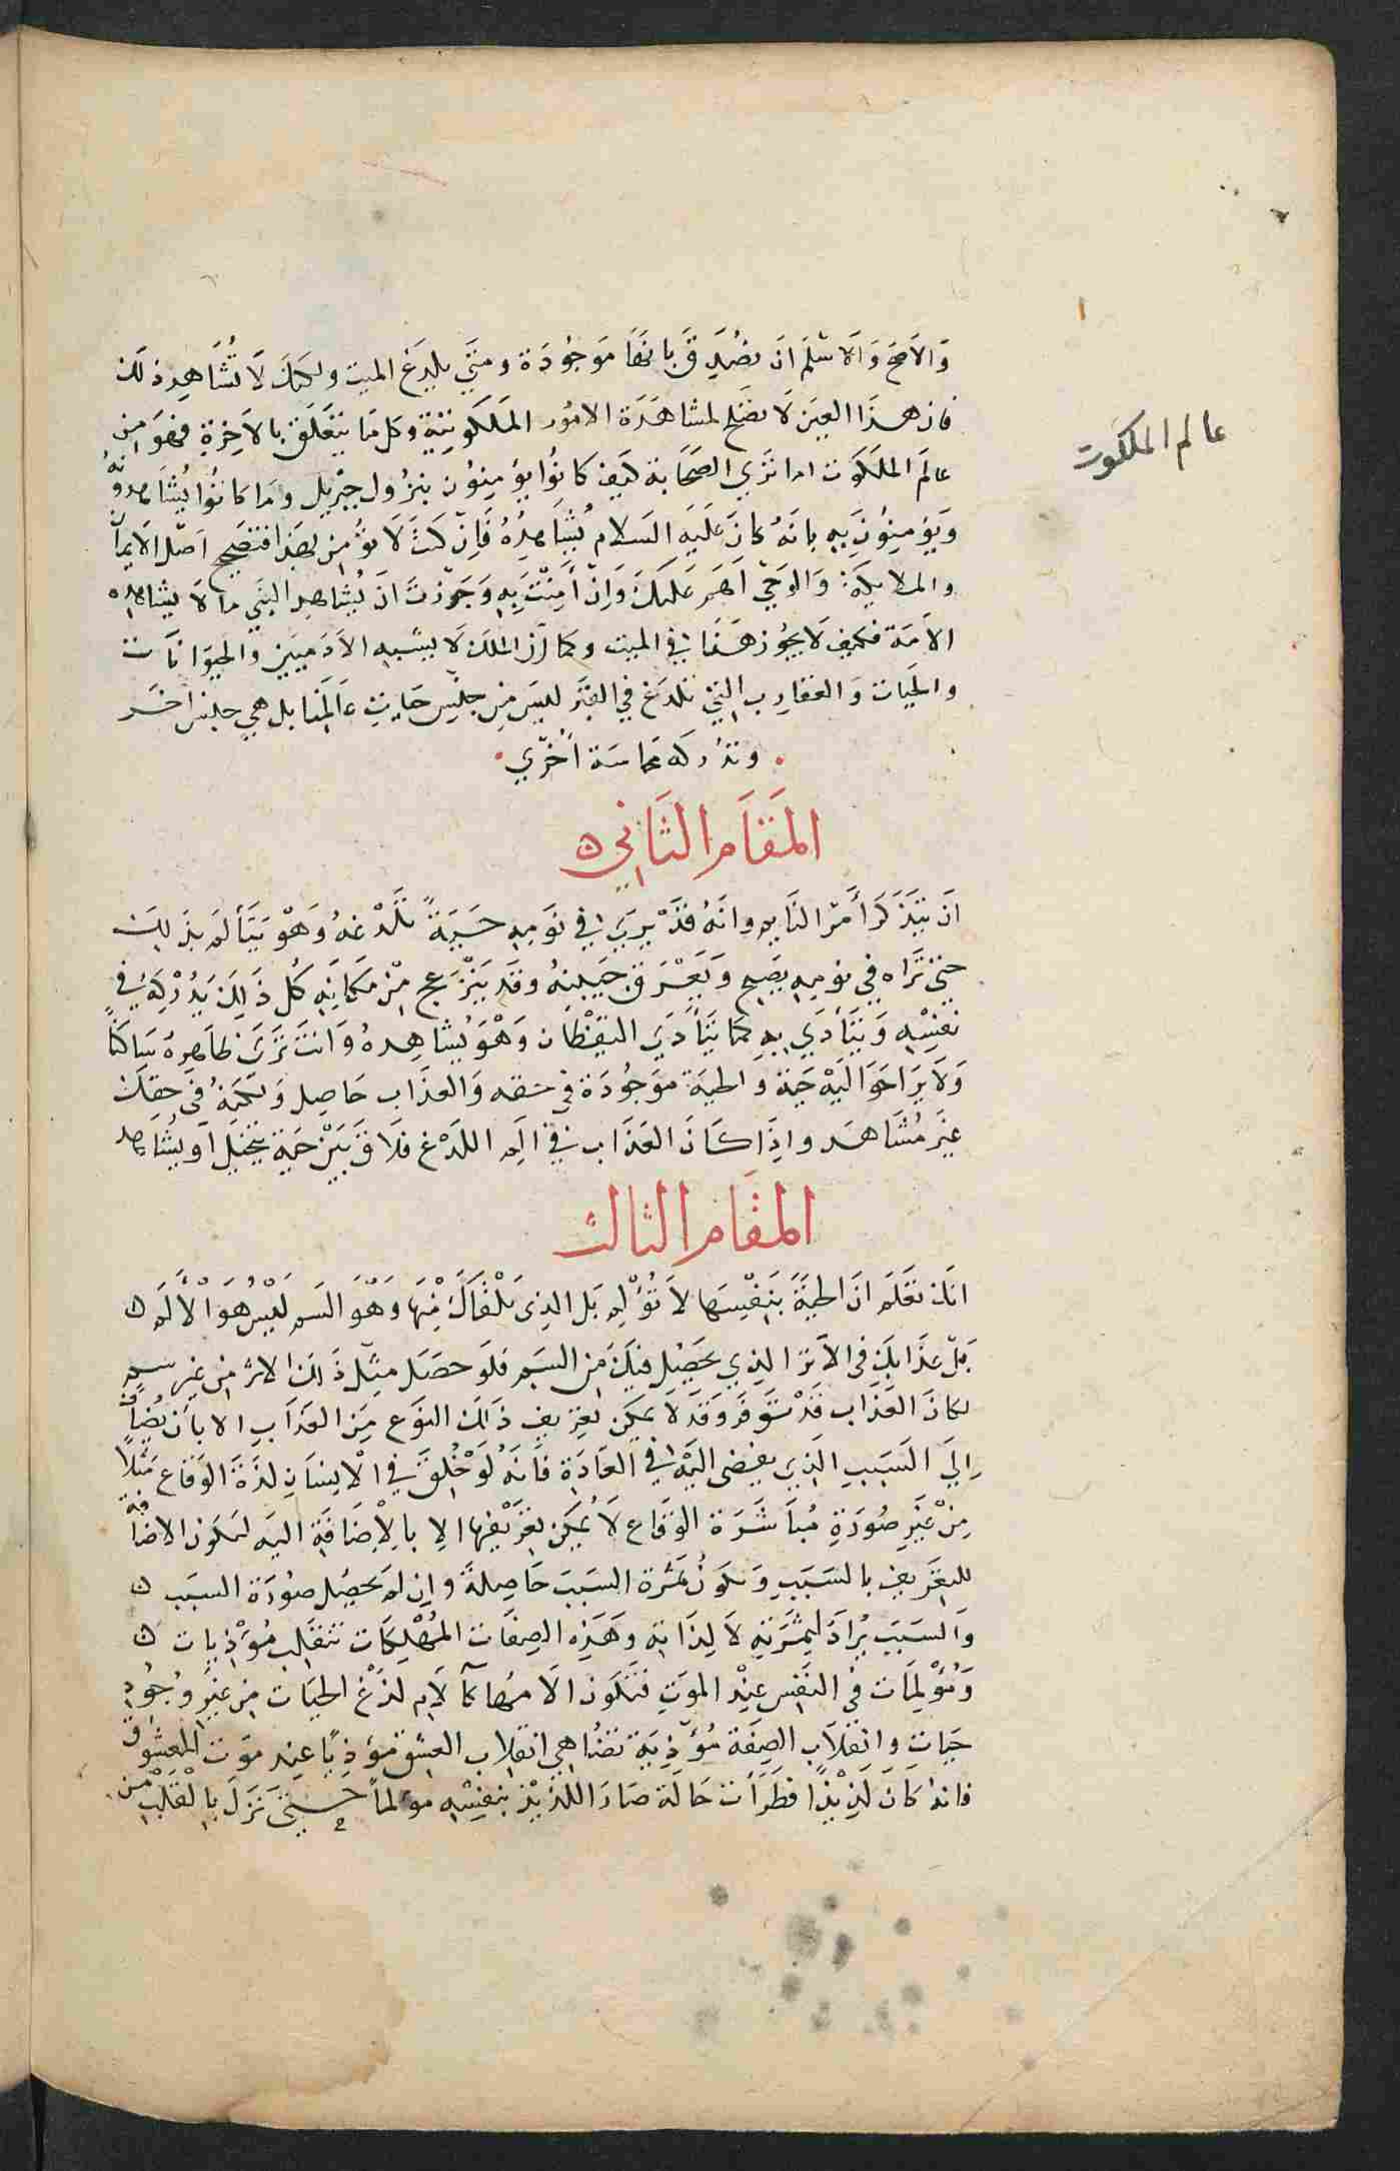 والاصح والاسلم ان تصدق بانها موجودة وهي تلدغ الميت ولكنك لا تشاهد ذلك
فان هذا العين لا تصلح لمشاهدة الامور الملكوتية وكل ما يتعلق بالاخرة فهو من
عالم الملكوت اما ترى الصحابة كيف كانوا يؤمنون بنزول جبريل وما كانوا يشاهدونه
ويؤمنون به بانه كان عليه السلام يشاهده فان كنت لا تؤمن بهذا فتصحيح اصل الايمان
والملايكة والوحي اهم عليك وان امنت به وجوزت ان يشاهد النبي ما لا يشاهده
الامة فكيف لا يجوز هذا في الميت وكما ان الملك لا يشبه الادميين والحيوانات
والحيات والعقارب التي تلدغ في القبر ليس من جنس حيات عالمنا بل هي جنس اخر
وتدركه بحاسة أخرى
المقام الثاني
ان تتذكر أمر النايم وانه قد يرى في نومه حية تلدغه وهو يتألم بذلك
حتى تراه في نومه يصيح ويعرق جبينه وقد ينزعج من مكانه كل ذلك يدركه في
نفسه ويتأذى به كما يتأذى اليقظان وهو يشاهده وانت ترى ظاهره ساكنا
ولا يرى حواليه حية والحية موجودة في حقه والعذاب حاصل ولكنه في حقك
غير مشاهد واذا كان العذاب في الم اللدغ فلا فرق بين حية تتخيل او يشاهد
المقام الثالث
انك تعلم ان الحية بنفسها لا تؤلم بل الذي يلقاك منها وهو السم ليس هو الألم
بل عذابك في الاثر الذي يحصل فيك من السم فلو حصل مثل ذلك الاثر من غير سم
لكان العذاب قد توفر وقد لا يمكن تعريف ذلك النوع من العذاب الا بان يضاف
إلى السبب الذي يفضى اليه في العادة فانه لو خلق في الانسان لذة الوقاع مثلا
من غير صورة مباشرة الوقاع لا يمكن تعريفها الا بالاضافة اليه لتكون الاضافة
للتعريف بالسبب وتكون ثمرة السبب حاصلة وان لم يحصل صورة السبب
والسبب يراد لثمرته لا لذاته وهذه الصفات المهلكات تنقلب مؤذيات
ومؤلمات في النفس عند الموت فتكون الامها كآلام لدغ الحيات من غير وجود
حيات وانقلاب الصفة مؤذية تضاهي انقلاب العشق مؤذيا عند موت المعشوق
فانه كان لذيذا فطرأت حالة صار اللذيذ بنفسه مؤلما حتى نزل بالقلب من
عالم الملكوت